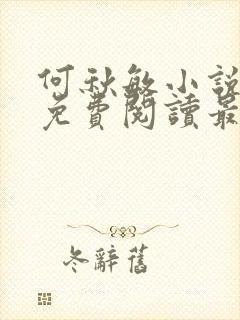 何秋敏小說
免費閱讀最
冬辭舊